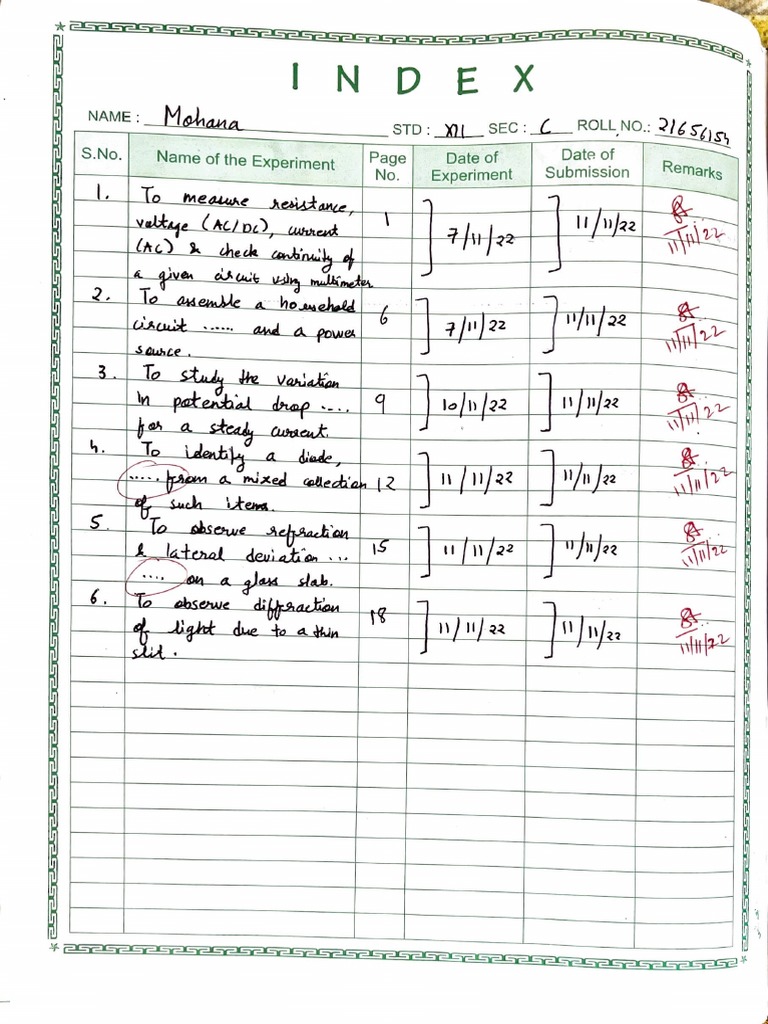 INDEX
NAME : Mohana STD : XII SEC : C ROLL NO.: 21656154
S.No. Name of the Experiment Page No. Date of Experiment Date of Submission Remarks
1. To measure resistance,
voltage (AC/DC), current 1 7/11/22 11/11/22 11/11/22
(AC) & check continuity of
a given circuit using multimeter
2. To assemble a household 6
circuit ...... and a power 7/11/22 11/11/22 11/11/22
source.
3. To study the variation
in potential drop .... 9 10/11/22 11/11/22 11/11/22
for a steady current.
4. To identify a diode,
..... from a mixed collection 12 11/11/22 11/11/22 11/11/22
of such items.
5. To observe refraction
& lateral deviation ... 15 11/11/22 11/11/22 11/11/22
.... on a glass slab.
6. To observe diffraction 18
of light due to a thin 11/11/22 11/11/22 11/11/22
slit.